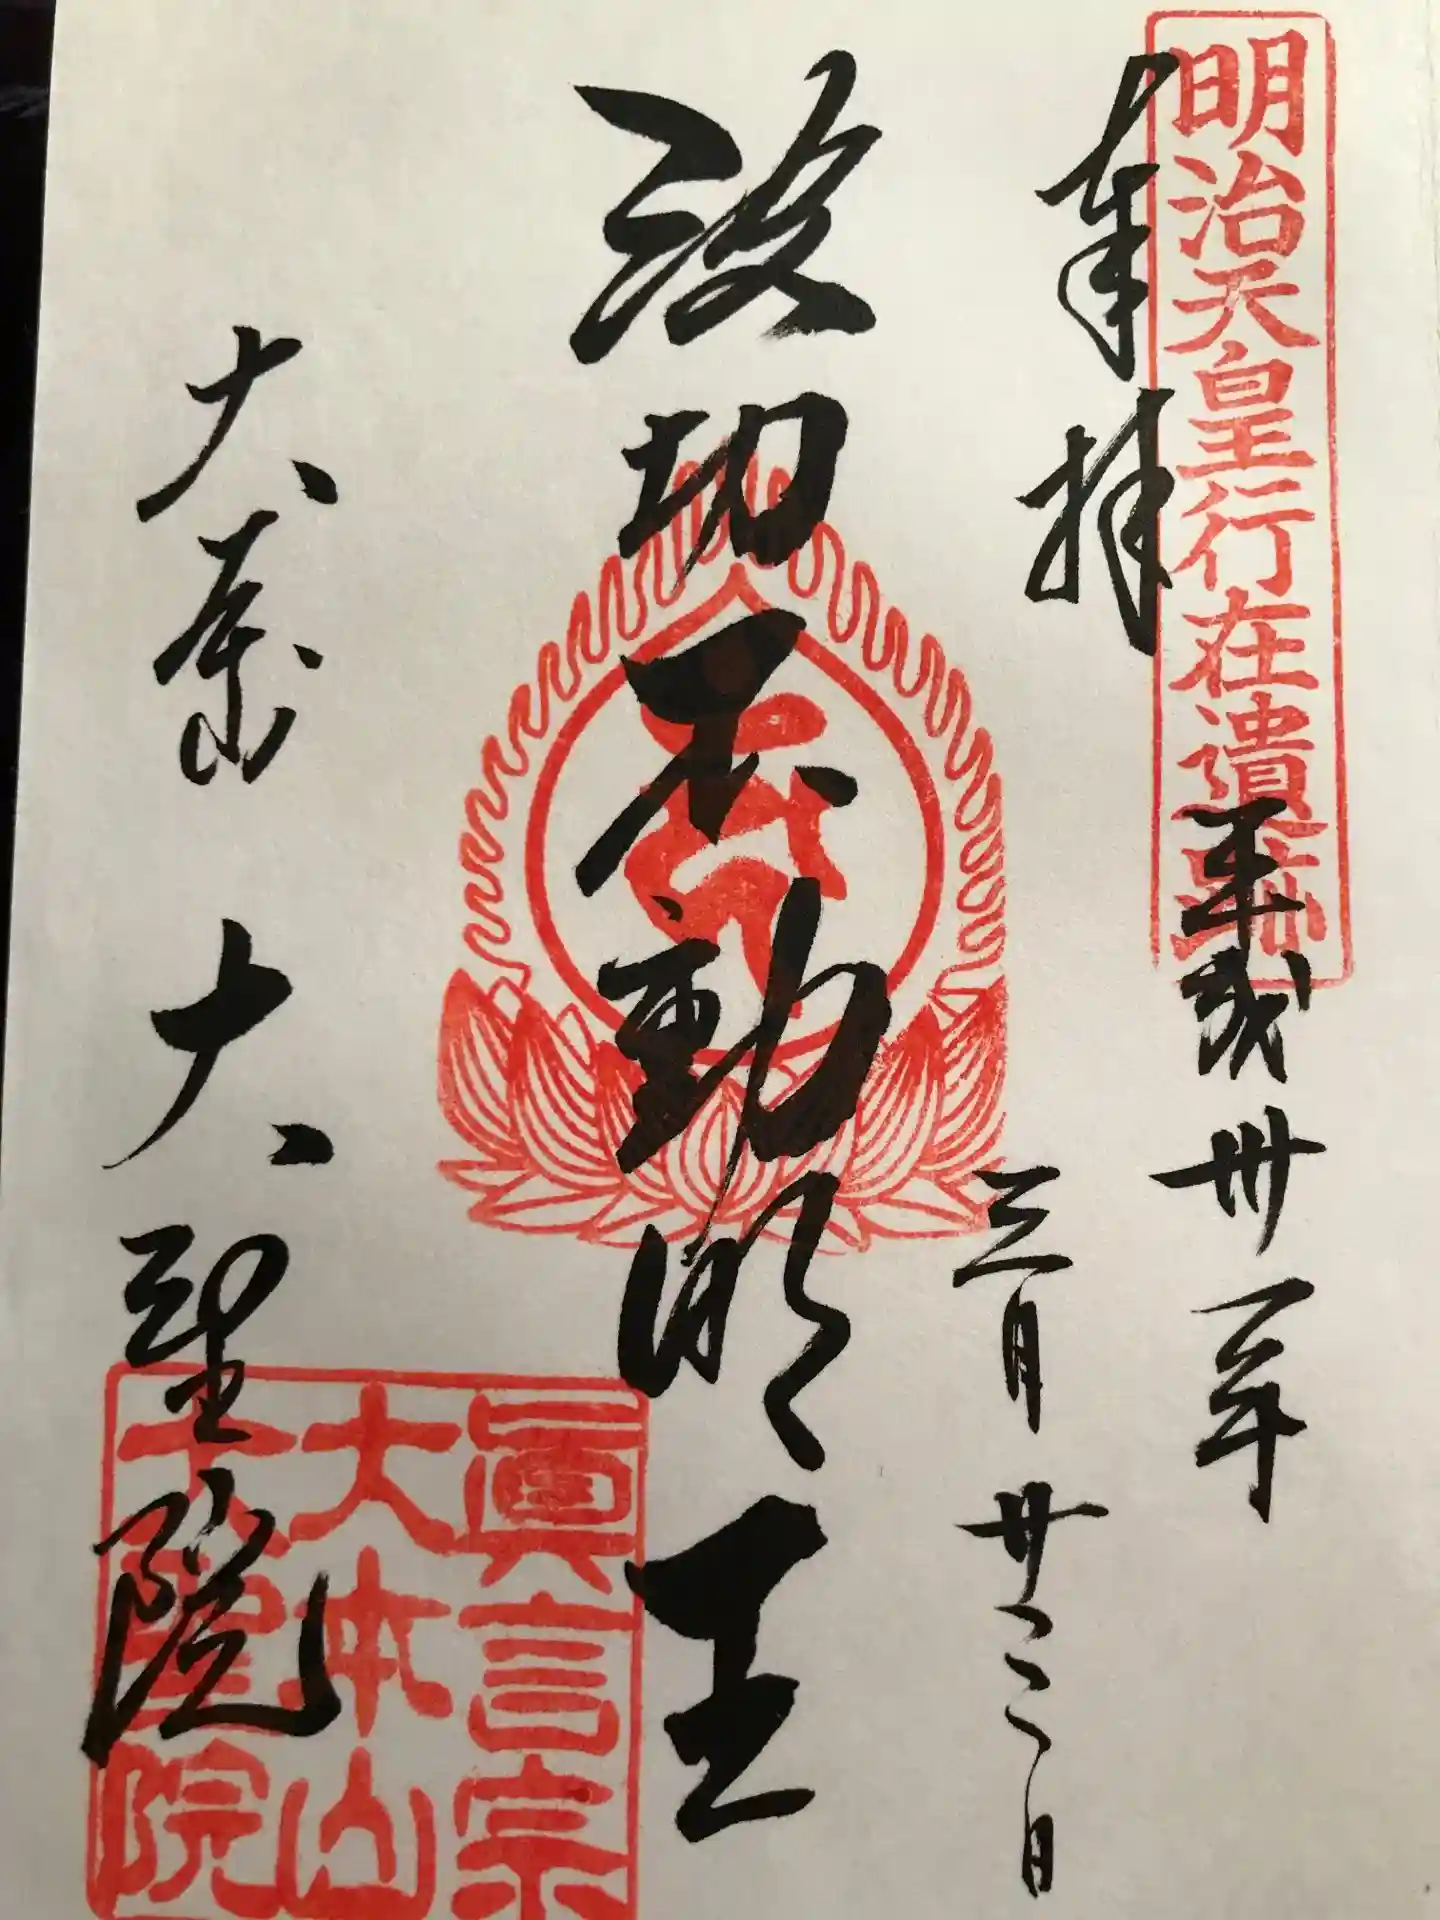 明治天皇行在遺跡
奉拝
平成卅一年
三月廿三日
波切不動明王
大本山 大聖院
眞言宗
大本山
大聖院